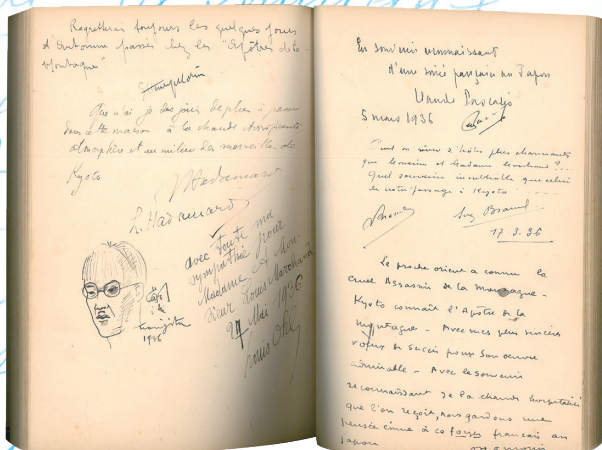 Regretterai toujours les quelques jours
d'Automne passés chez les "Apôtres de la
Montagne"
Que n'ai-je des jours de plus à passer
dans cette maison à la chaude
atmosphère et au milieu des merveilles de
Kyoto
J Hadamard
L. Hadamard
avec toute ma
sympathie pour
Madame et Mon-
sieur Louis Marchand
27 Mai 1936
1936
En souvenir reconnaissant
d'une soirée française au Japon
5 mars 1936
Peut-on rêver d'hôtes plus charmants
que Monsieur et Madame Marchand ?...
Quel souvenir inoubliable que celui
de notre passage à Kyoto
17.3.36
Le proche orient a connu le
cruel Assassin de la Montagne -
Kyoto connaît l'Apôtre de la
Montagne - Avec mes plus sincères
voeux de succès pour son oeuvre
admirable - Avec le souvenir
reconnaissant de la chaude hospitalité
que l'on reçoit, nous gardons une
pensée émue à ce foyer français au
Japon